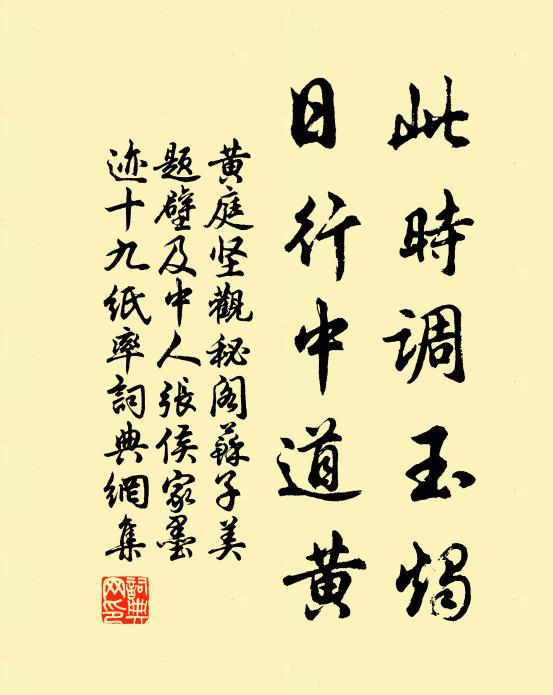 此時調玉燭
日行中道黄
黄庭坚觀秘阁蘇子美
题壁及中人張侯家墨
迹十九纸率詞典網集
詞典网印